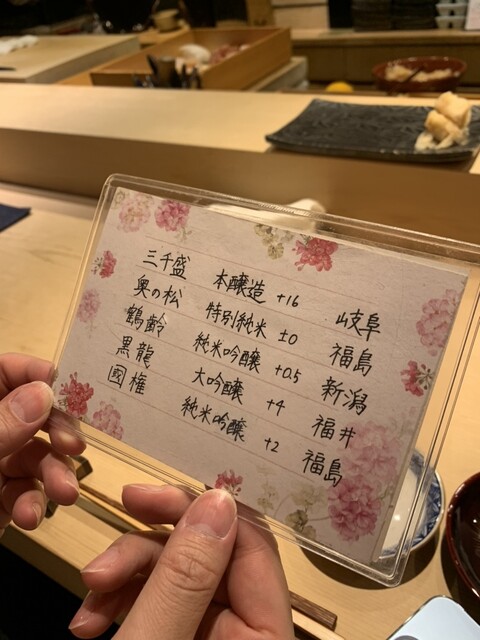 三千盛 本醸造 +16 岐阜
奥の松 特別純米 ±0 福島
鶴齢 純米吟醸 +0.5 新潟
黒龍 大吟醸 +4 福井
國権 純米吟醸 +2 福島